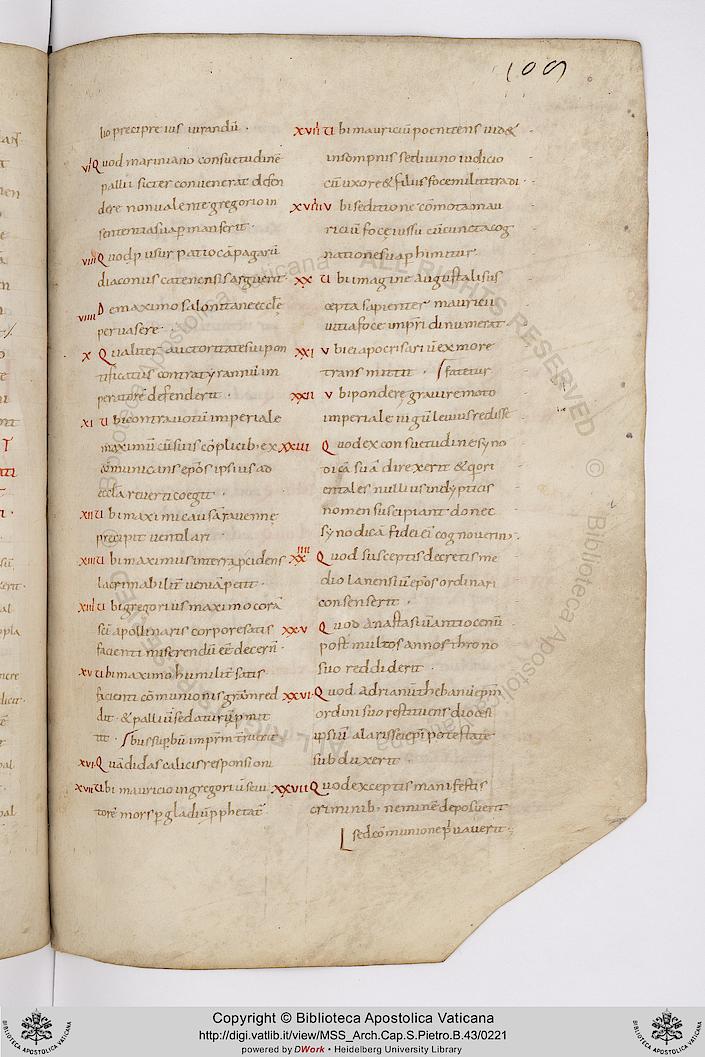 109
lio precipre ius uirandū .
vi Quod mariniano consuetudinē
pallii sicter convenerat defen
dere nonualente gregorio in
sententia suap manserit .
viii Quod ꝑ usurpatio cāpaganū
diaconus catenensis arguerit
viiii Demaximo salonitane eccłe
peruasere .
x Qualiter auctoritate sui pon
tificatus contra tyrannū im
peratorē defenderit .
xi Ubi contra uotū imperiale
maximū cū suis cōplicib; ex
cōmunicans ep̄os ipsius ad
eccła reuerti coegit .
xii Ubi maximi causā rauenne
precipit uentilari .
xiii Ubi maximus interra ꝑcidens
lacrimabilit̄ ueniā petit .
xiiii Ubi gregorius maximo corā
sc̄i apollinaris corpore satis
facienti miserendū eē decern̄
xv Ubi maximo humilit̄ satis
facienti cōmunionis gratiā red
dit . & palliū se daturū ꝓmit
tit . sbus suꝑbū imprm̄ t̄ruerit
xvi Quā didas calicis responsioni
xvii Ubi mauricio in gregoriū seui
tore mors ꝑ gladiū ꝓphetat̄
xviii Ubi mauriciū poenitens uid&
insompnis se diuino iudicio
cū uxore & filiis foce militi tradi .
xviiii Ubi seditione cōmota mau
riciū foce iussu cū cuncta cog
natione sua ꝑhimitur .
xx Ubi imagine augustali sus
cepta sapienter mauricii
uitia foce imꝑri dinumerat
xxi Ubi ei apocrisariū ex more
transmittit . fatetur
xxii Ubi pondere graui remoto
imperiale iugū leuius redisse
xxiii Quod ex consuetudine syno
dicā suā direxerit & qd ori
entales nullius in dypticis
nomen suscipiant donec
synodicā fidei ei cognouerin .
xxiiii Quod susceptis decretis me
diolanensiū ep̄os ordinari
consenserit .
xxv Quod anastasiū antiocenū
post multos annos throno
suo reddiderit .
xxvi Quod adrianū thebanū ep̄m
ordini suo restituens diocesi
ipsiū a larissei ep̄i potestate
subduxerit .
xxvii Quod exceptis manifestis
criminib; neminē deposuerit
sed cōmunione p̄uauerit .
Copyright © Biblioteca Apostolica Vaticana
http://digi.vatlib.it/view/MSS_Arch.Cap.S.Pietro.B.43/0221
powered by DWork • Heidelberg University Library